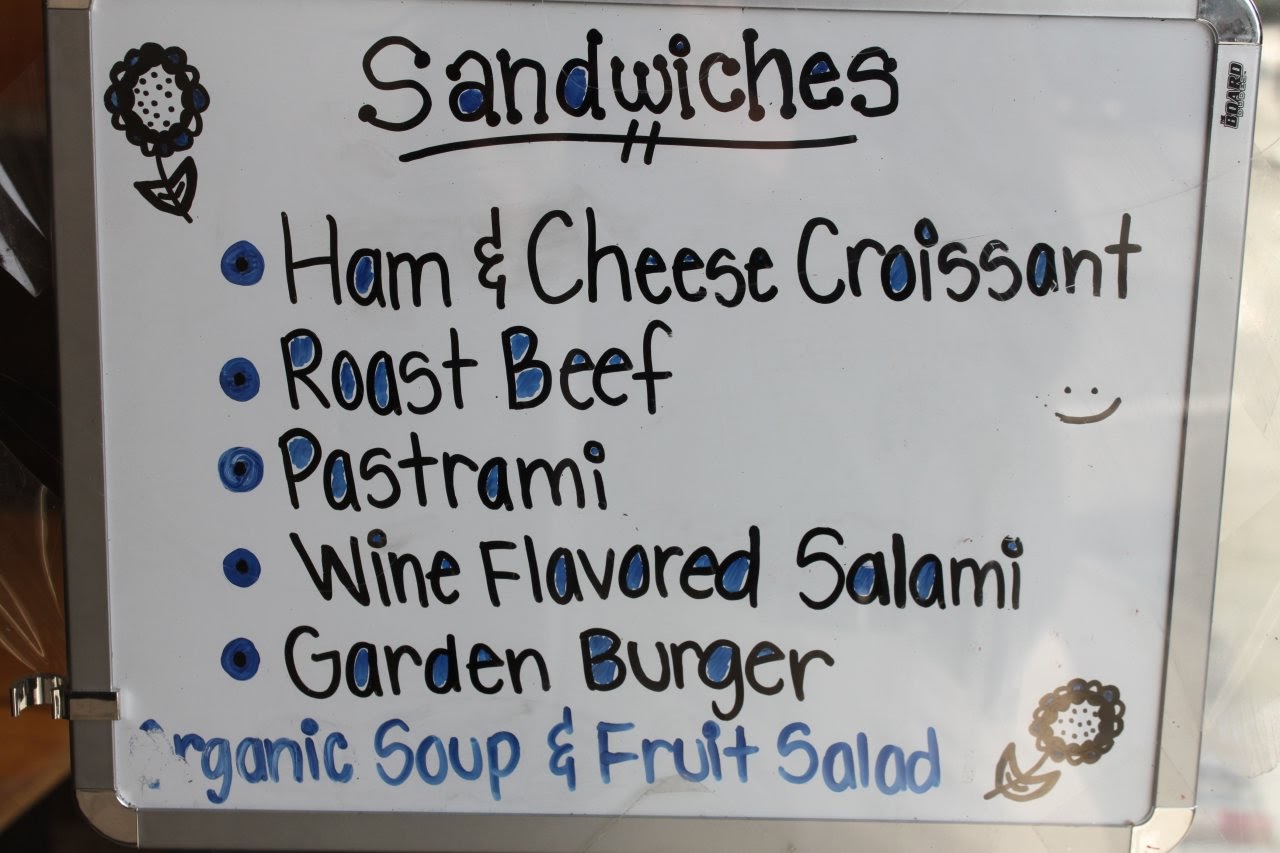 Sandwiches
Ham & Cheese Croissant
Roast Beef
Pastrami
Wine Flavored Salami
Garden Burger
Organic Soup & Fruit Salad
THE BOARD